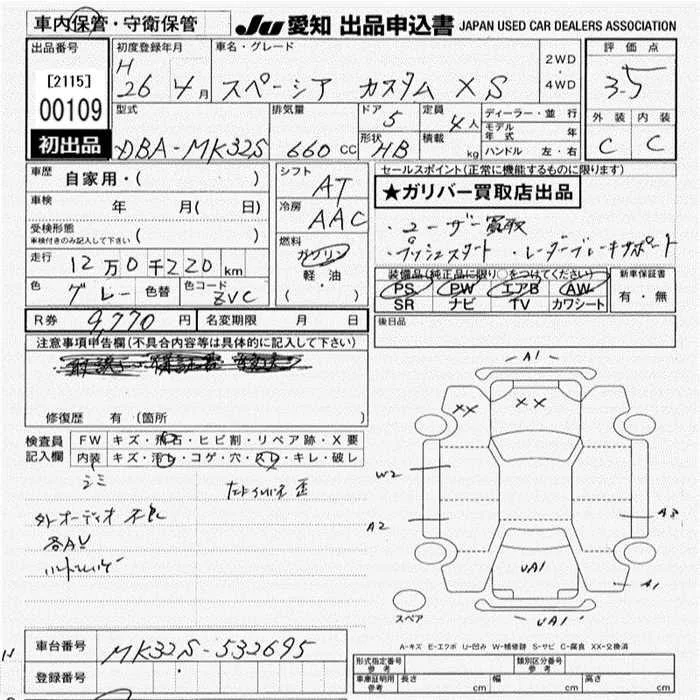 車内保管・守衛保管
JU 愛知 出品申込書 JAPAN USED CAR DEALERS ASSOCIATION
出品番号
[2115]
00109
初出品
初度登録年月
H 26 4月
車名・グレード
スペーシア カスタム XS
2WD
・
4WD
評価点
3.5
外装 内装
C C
型式
DBA-MK32S
排気量
660 cc
ドア
5
定員
4人
形状
HB
積載
kg
ディーラー・並行
モデル年式 年
ハンドル 左・右
車歴
自家用・( )
車検
年 月( 日)
受検形態
車検付きのみ記入して下さい ( )
走行
12万0千220km
色
グレー
色替
色コード
ZVC
シフト
AT
冷房
AAC
燃料
ガソリン
軽・油
( )
セールスポイント(正常に機能するものに限ります)
★ガリバー買取店出品
・ユーザー買取
・プッシュスタート ・レーダーブレーキサポート
装備品(純正品に限り○をつけてください)
PS PW エアB AW
SR ナビ TV カワシート
新車保証書
有・無
R券 9,770 円
名変期限 月 日
後日品
注意事項申告欄(不具合内容等は具体的に記入して下さい)
修復歴 有 (箇所 )
検査員
記入欄
FW キズ・飛石・ヒビ割・リペア跡・X要
内装 キズ・汚レ・コゲ・穴・スレ・キレ・破レ
シミ
外オーディオ不良
各AU
A1
XX
XX
W2
A2
A3
UA1
A1
UA1
スペア
A-キズ E-エクボ U-凹み W-補修跡 S-サビ C-腐良 XX-交換済
車台番号
MK32S-532695
登録番号
形式指定番号
参考
類別区分番号
参考
車庫証明用
参考
長さ cm
幅 cm
高さ cm